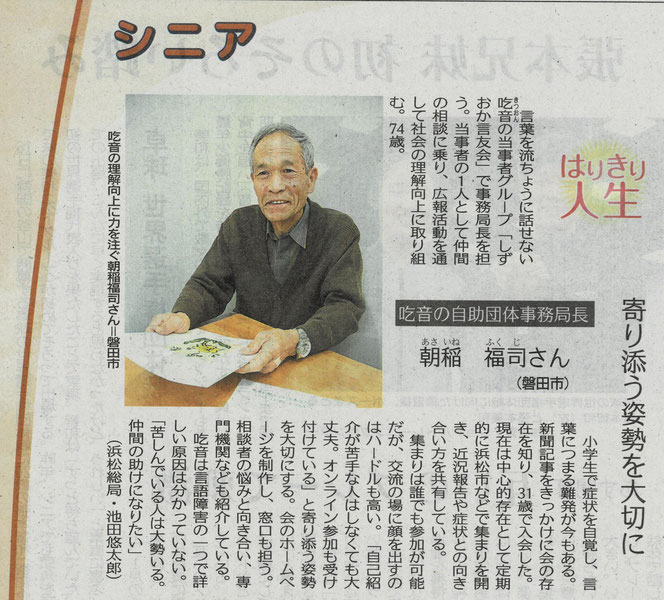 シニア
はりきり
人生
寄り添う姿勢を大切に
吃音の自助団体事務局長
朝稲 福司さん
あさ いね ふく じ
(磐田市)
言葉を流ちょうに話せない
吃音の当事者グループ「しず
きつおん
おか言友会」で事務局長を担
う。当事者の1人として仲間
の相談に乗り、広報活動を通
して社会の理解向上に取り組
む。74歳。
吃音の理解向上に力を注ぐ朝稲福司さん＝磐田市
小学生で症状を自覚し、言
葉につまる難発が今もある。
新聞記事をきっかけに会の存
在を知り、31歳で入会した。
現在は中心的存在として定期
的に浜松市などで集まりを開
き、近況報告や症状との向き
合い方を共有している。
集まりは誰でも参加が可能
だが、交流の場に顔を出すの
はハードルも高い。「自己紹
介が苦手な人はしなくても大
丈夫。オンライン参加も受け
付けている」と寄り添う姿勢
を大切にする。会のホームペ
ージを制作し、窓口も担う。
相談者の悩みと向き合い、専
門機関なども紹介している。
吃音は言語障害の一つで詳
しい原因は分かっていない。
「苦しんでいる人は大勢いる。
仲間の助けになりたい」
(浜松総局・池田悠太郎)